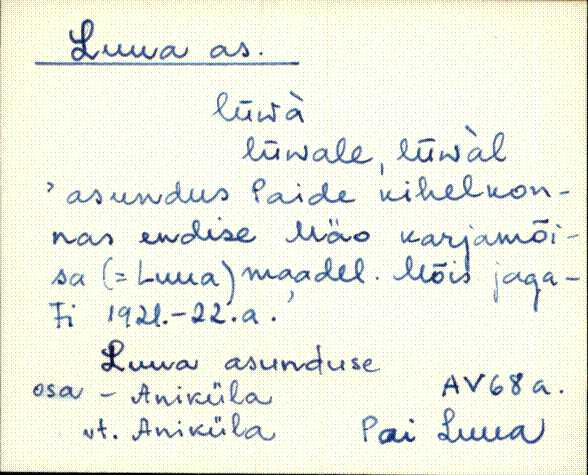 Luua as.
lūwà
lūwale, lūwàl
'asundus Paide kihelkon-
nas endise Mäo karjamõi-
sa (= Luua) maadel. Mõis jaga-
ti 1921.-22.a.'
Luua asunduse
osa - Aniküla
vt. Aniküla
AV68a.
Pai Luua